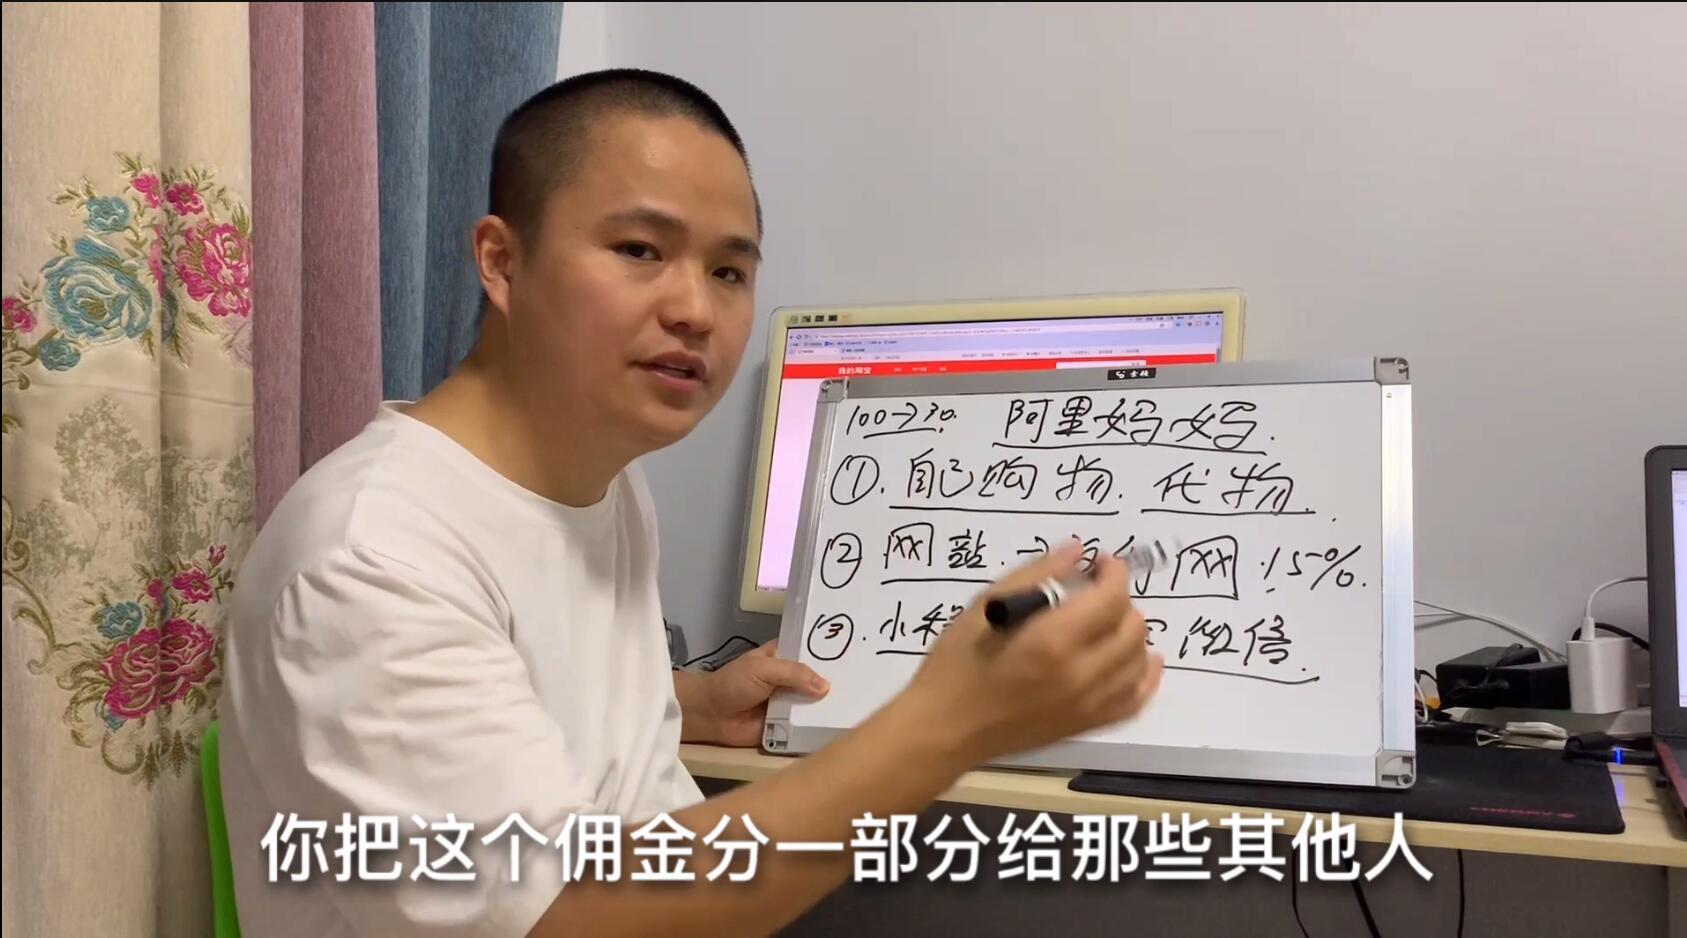 我的淘宝
100→30.
阿里妈妈.
①. 自己购物. 代物.
② 网站. → 网. 15%.
③. 小 微信.
CHERRY
你把这个佣金分一部分给那些其他人